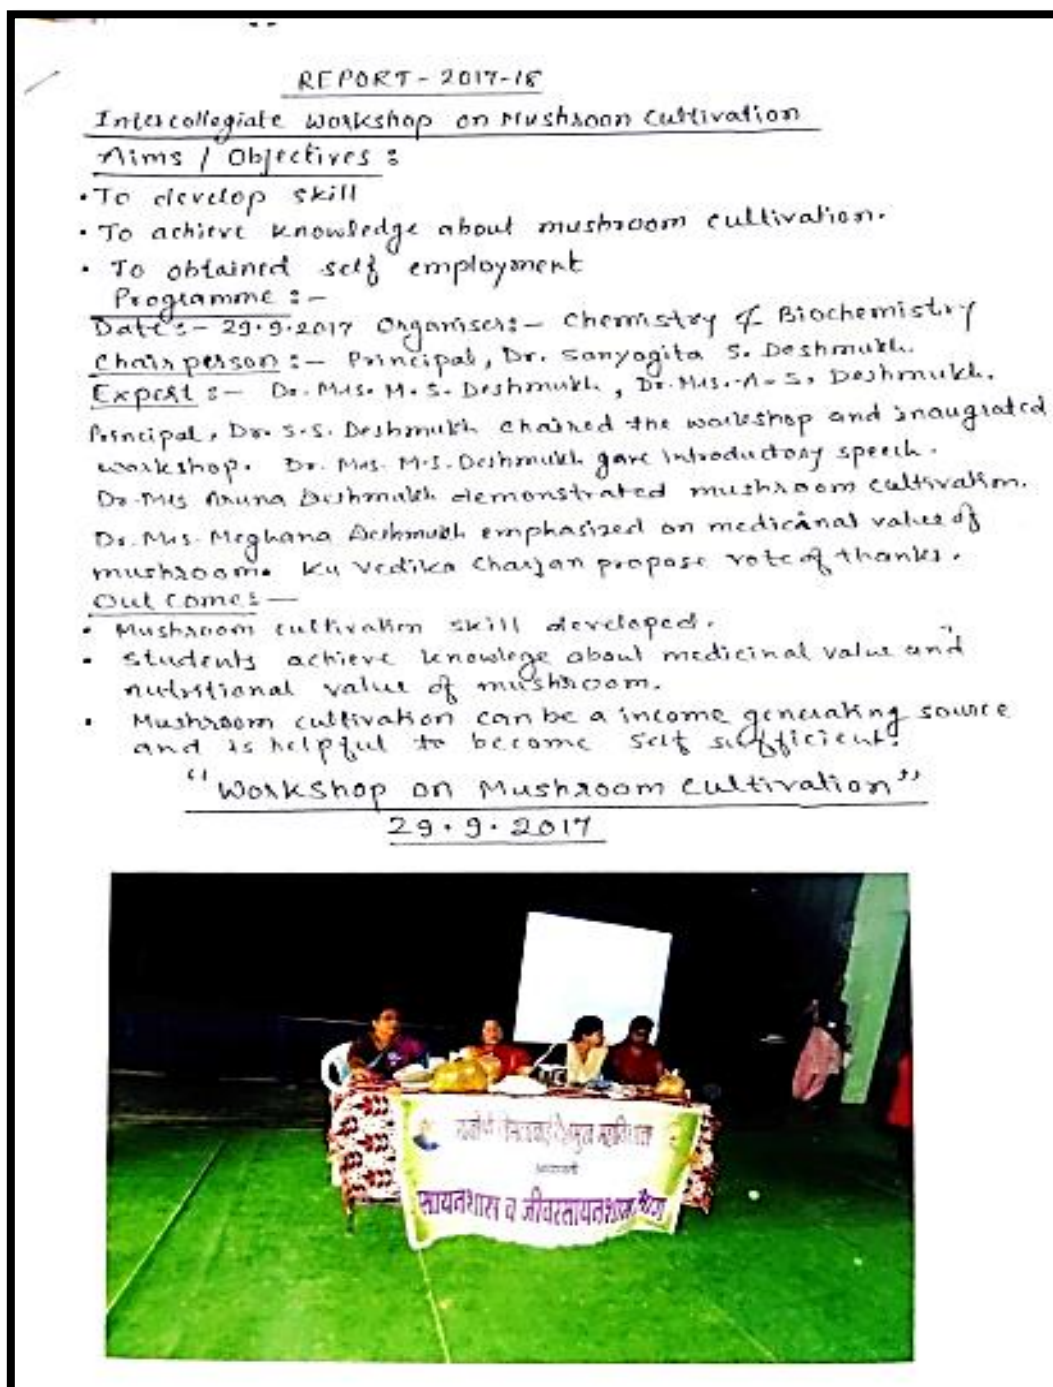 REPORT - 2017-18
Intercollegiate Workshop on Mushroon Cultivation
Aims / Objectives :
• To develop skill
• To achieve knowledge about mushroom cultivation.
• To obtained self employment
Programme :-
Date :- 29.9.2017 Organiser:- Chemistry & Biochemistry
Chairperson :- Principal, Dr. Sanyogita S. Deshmukh.
Expert :- Dr. Mrs. M. S. Deshmukh, Dr. Mrs. A. S. Deshmukh.
Principal, Dr. S.S. Deshmukh Chaired the workshop and inaugrated
workshop. Dr. Mrs. M.S. Deshmukh gave introductory speech.
Dr. Mrs Aruna Deshmukh demonstrated mushroom cultivation.
Dr. Mrs. Meghana Deshmukh emphasized on medicinal value of
mushroom. Ku Vedika Charjan propose vote of thanks.
Out Come:—
• Mushroom cultivation skill developed.
• Students achieve knowlege about medicinal value and
nutritional value of mushroom.
• Mushroom cultivation can be a income generating source
and is helpful to become self sufficient.
"Workshop on Mushroom Cultivation"
29.9.2017
महाविद्यालय
अमरावती
सायनशास्त्र व जीवरसायनशास्त्र